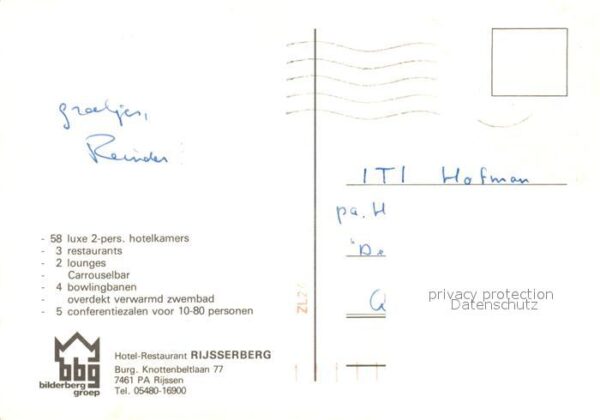 groetjes,
Reinder
- 58 luxe 2-pers. hotelkamers
- 3 restaurants
- 2 lounges
- Carrouselbar
- 4 bowlingbanen
- overdekt verwarmd zwembad
- 5 conferentiezalen voor 10-80 personen
bbg
bilderberg
groep
Hotel-Restaurant RIJSSERBERG
Burg. Knottenbeltlaan 77
7461 PA Rijssen
Tel. 05480-16900
ITI Hofman
pa. H
De
privacy protection
Datenschutz